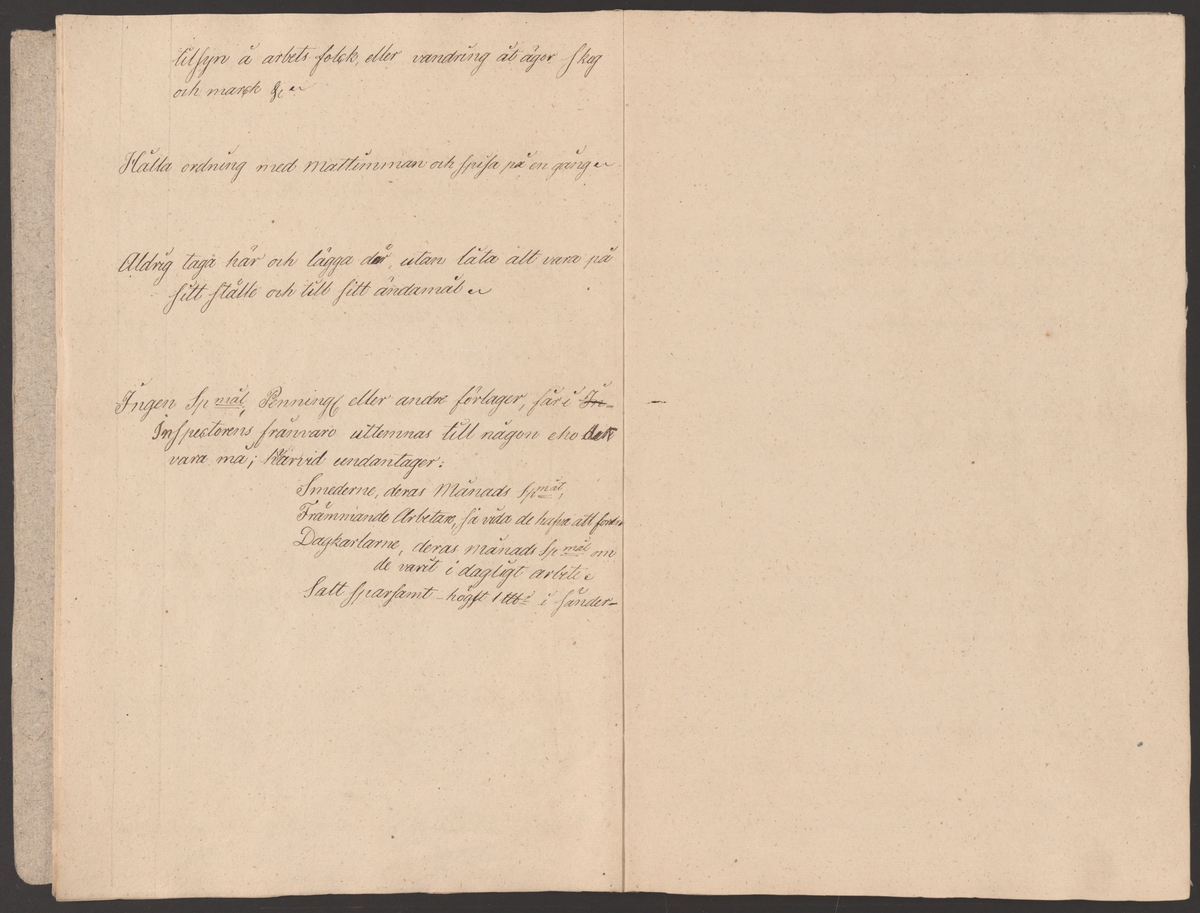 tilsyn å arbets folck, eller vandring åt äger skog
och marck &c
Hålla ordning med mattimman och spisa på en gång
Aldrig taga här och lägga där, utan låta alt vara på
sitt ställe och till sitt ändamål
Ingen Sp mål, Penning eller andre förlager, får i In-
Inspectorens frånvaro utlemnas till någon eho det
vara må; Härvid undantager:
Smederne, deras Månads Sp mål,
Främmande Arbetare, så vida de hafva att fordra
Dagkarlarne, deras månads Sp mål om
de varit i dagligt arbete
Salt sparsamt högst 1 i sänder